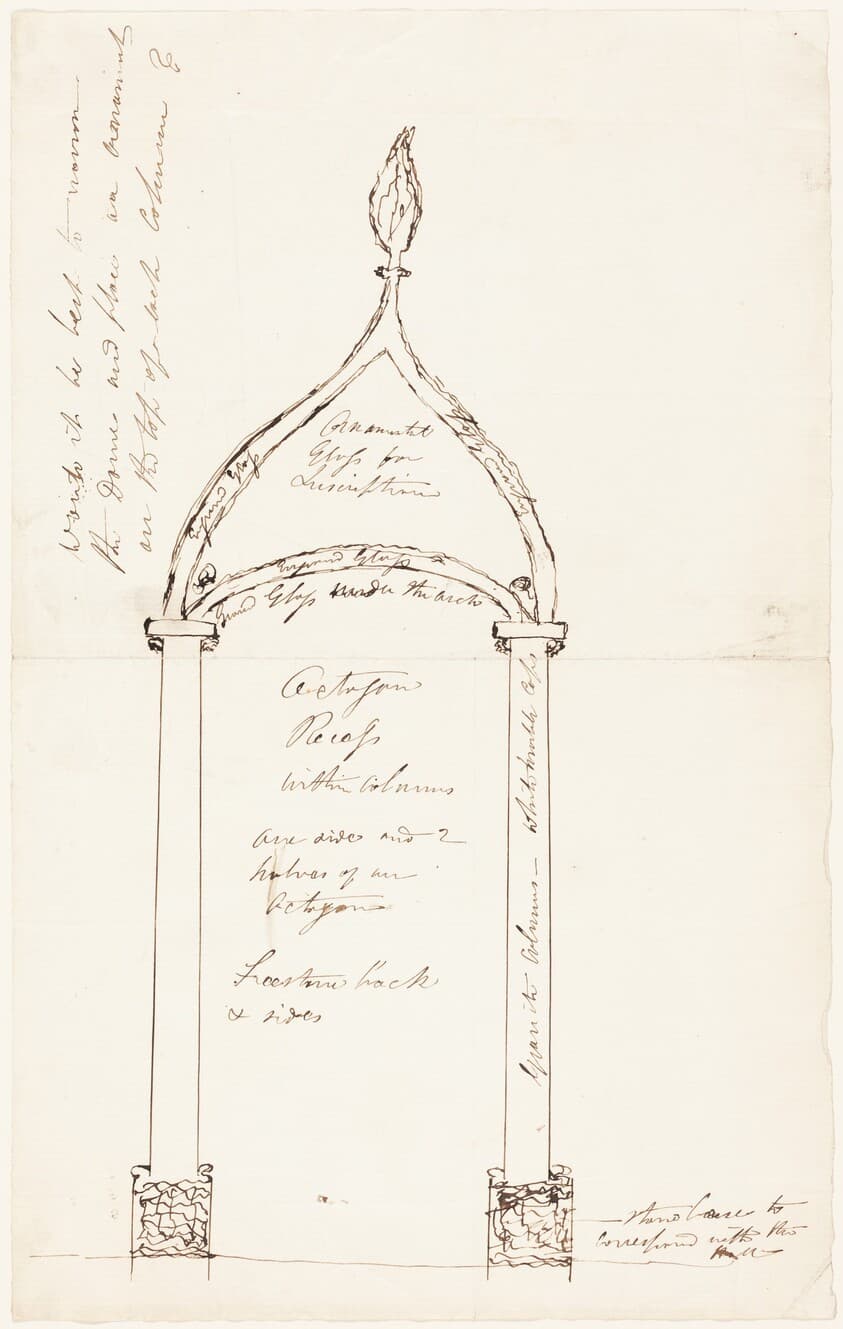 Would it be best to
the Dome and place an ornament
on the top of each Column
Ornamental
Glass for
Inscription
Ground Glass
Ground Glass
Ground Glass
Ground Glass under the arch
Octagon
Recess
within Columns
one side and 2
halves of an
Octagon
Freestone back
& sides
Granite Columns — white marble Caps
stone bases to
correspond with the